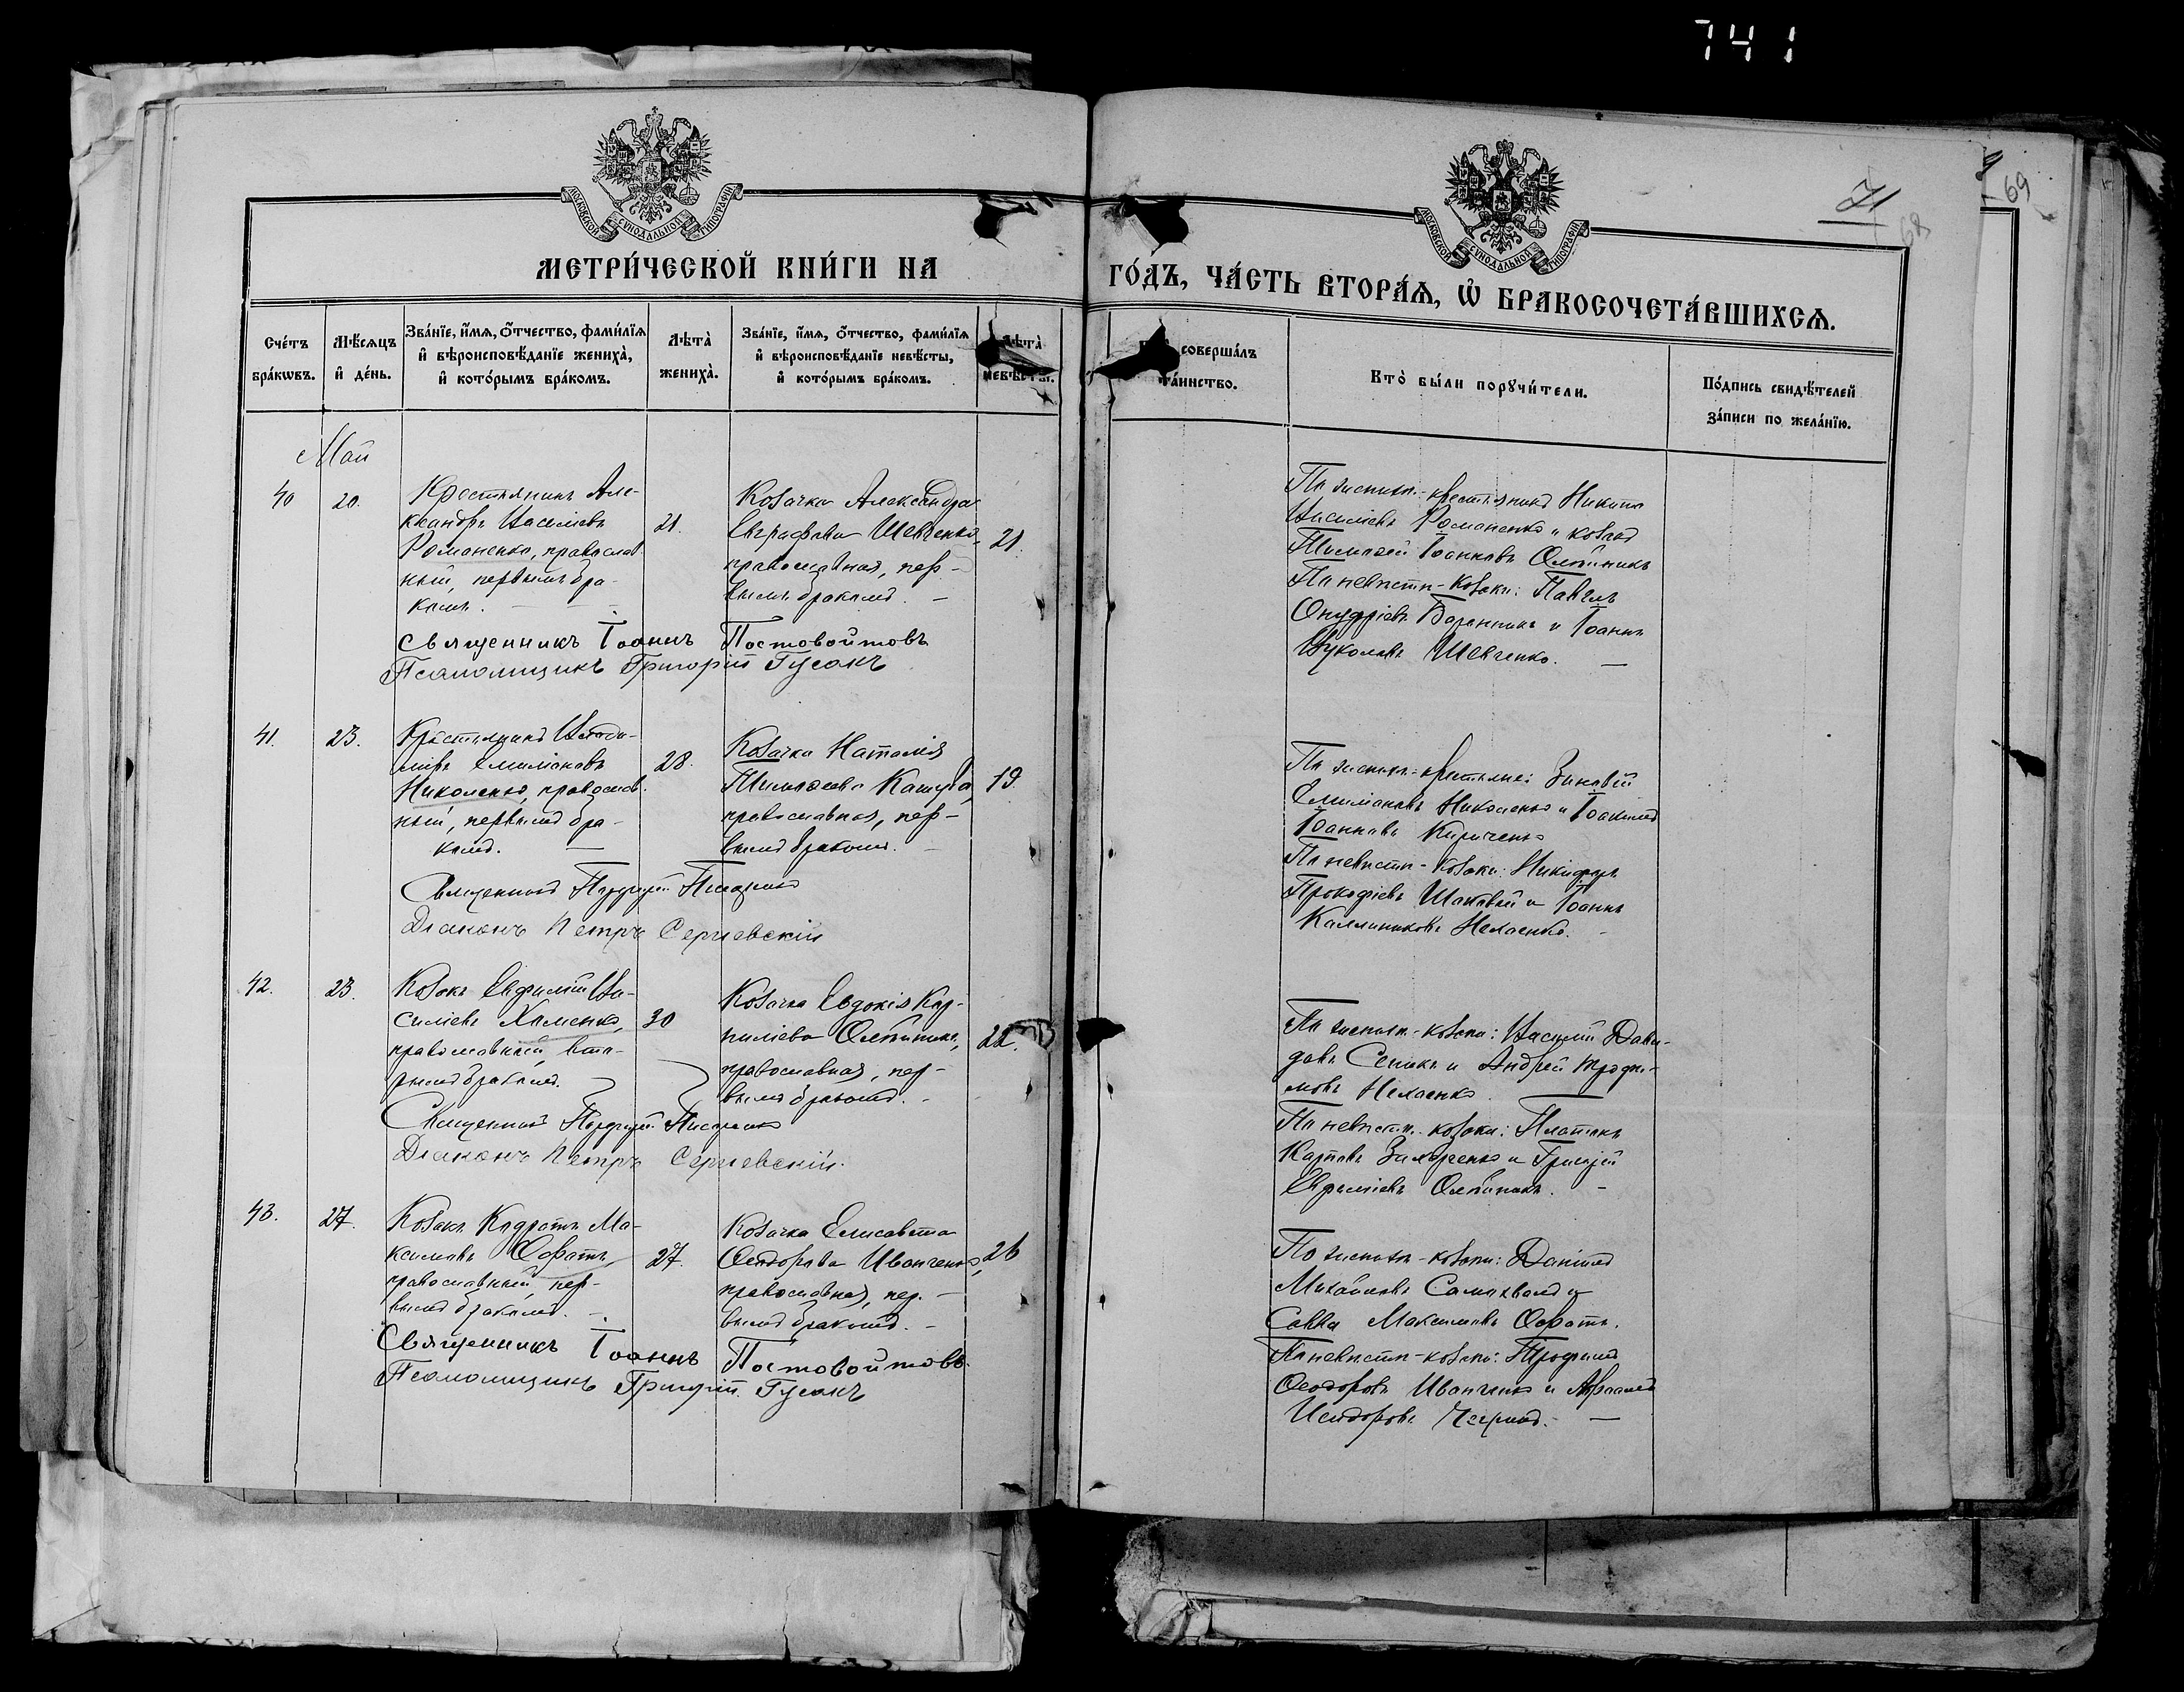 741
71
68
9
69
МОСКОВСКОЙ СѴНОДАЛЬНОЙ ТИПОГРАФІИ
МОСКОВСКОЙ СѴНОДАЛЬНОЙ ТИПОГРАФІИ
МЕТРИ́ЧЕСКОЙ КНИ́ГИ НА
ГО́ДЪ, ЧА́СТЬ ВТОРА́Ѧ, Ѽ БРАКОСОЧЕТА́ВШИХСѦ.
Сче́тъ
бра́кѡвъ.
Мѣ́сѧцъ
и҆ де́нь.
Зва́нїе, и҆́мѧ, ѻ҆́тчество, фами́лїѧ
и҆ вѣроисповѣ́данїе жениха̀,
и҆ кото́рымъ бра́комъ.
Лѣта̀
жениха̀.
Зва́нїе, и҆́мѧ, ѻ҆́тчество, фами́лїѧ
и҆ вѣроисповѣ́данїе невѣ́сты,
и҆ кото́рымъ бра́комъ.
Лѣта̀
невѣ́сты.
соверша́лъ
та́инство.
Кто̀ бы́ли порꙋчи́тели.
По́дпись свидѣ́телей
за́писи по жела́нїю.
Май
40
20.
Крестьянинъ Але-
ксандръ Васильевъ
Романенко, православ
ный, первымъ бра-
комъ.
21.
Козачка Александра
Евграфова Шевченко,
православная, пер-
вымъ бракомъ.
21.
По женихѣ - крестьянинъ Никита
Васильевъ Романенко и козакъ
Тимофей Іоанновъ Олейникъ
По невѣстѣ - козаки: Павелъ
Онуфріевъ и Іоаннъ
Вуколовъ Шевченко.
Священникъ Іоаннъ Постовойтовъ
Псаломщикъ Григорій Гусакъ
41.
23.
Крестьянинъ Влади-
міръ Емиліановъ
Николенко, православ
ный, первымъ бра-
комъ.
28.
Козачка Наталія
Тимофеева Кашуба,
православная, пер-
вымъ бракомъ.
19.
По женихѣ - крестьяне: Зиновій
Емиліановъ Николенко и Іоакимъ
Іоанновъ Кириченко
По невѣстѣ - козаки: Никифоръ
Прокофіевъ и Іоаннъ
Каллиниковъ
Священникъ
Діаконъ Петръ Сергіевскій
42.
23.
Козакъ Евфимій Ва-
сильевъ Хоменко,
православный, вто-
рымъ бракомъ.
30
Козачка Евдокія Кор-
ниліева Олейникъ,
православная, пер-
вымъ бракомъ.
22.
По женихѣ - козаки: Василій Давы-
довъ Сеникъ и Андрей Трофи-
мовъ
По невѣстѣ - козаки: Платонъ
Карповъ Захарченко и Григорій
Евфиміевъ Олейникъ.
Священникъ
Діаконъ Петръ Сергіевскій.
43.
27.
Козакъ Кодратъ Ма-
ксимовъ
православный, пер-
вымъ бракомъ.
27.
Козачка Елисавета
Ѳеодорова Иванченко,
православная, пер-
вымъ бракомъ.
26
По женихѣ - козаки: Даніилъ
Михайловъ Самохвалъ и
Савва Максимовъ
По невѣстѣ - козаки: Трофимъ
Ѳеодоровъ Иванченко и Авраамъ
Исидоровъ
Священникъ Іоаннъ Постовойтовъ.
Псаломщикъ Григорій Гусакъ